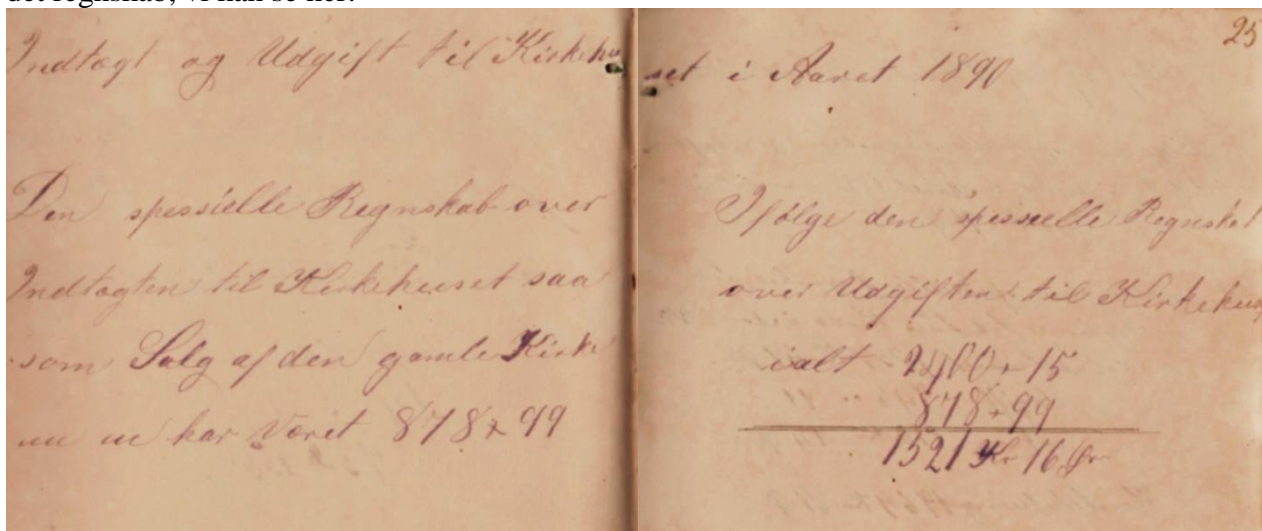 det regnskab, vi kan se her:
25
Indtægt og Udgift til Kirkehu
set i Aaret 1890
Den spessielle Regnskab over
Indtægten til Kirkehuset saa
som Salg af den gamle Kirke
har Været 878 x 99
Ifølge den spessielle Regnskab
over Udgiften til Kirkehus
ialt 2400 x 15
878 x 99
1521 Kr 16 Ør